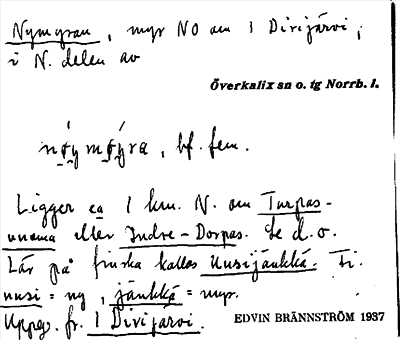 Nymyran, myr NO om 1 Dirijärvi,
i N. delen av
Överkalix sn o. tg Norrb. l.
nǿymǿyra, bf. fem.
Ligger ca 1 km. N. om Turpas-
uuama eller Indre-Dorpas. Se d.o.
Lär på finska kallas Uusijänkkä. Fi.
uusi = ny, jänkkä = myr.
Uppg. fr. 1 Dirijärvi.
EDVIN BRÄNNSTRÖM 1937